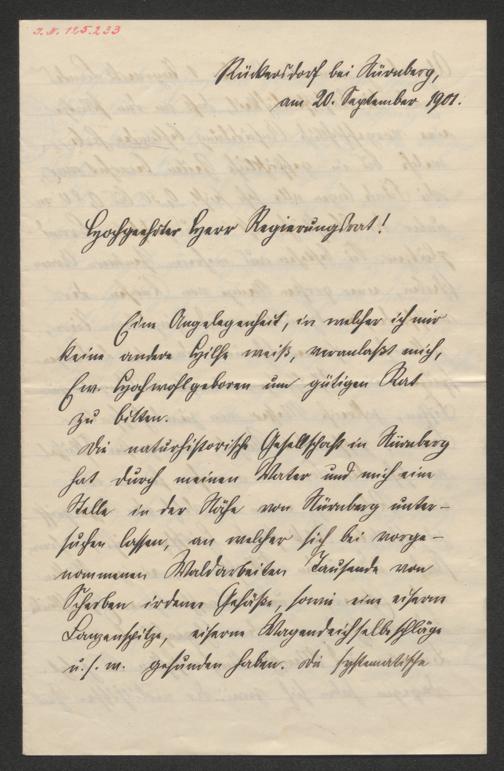 J.N. 125.233
Rückersdorf bei Nürnberg,
am 20. September 1901.
Hochgeehrter Herr Regierungsrat!
Eine Angelegenheit, in welcher ich mir
keine andere Hilfe weiß, veranlaßt mich,
Ew. Hochwohlgeboren um gütigen Rat
zu bitten.
Die naturhistorische Gesellschaft in Nürnberg
hat durch meinen Vater und mich eine
Stelle in der Nähe von Nürnberg unter-
suchen lassen, an welcher sich bei vorge-
nommenen Waldarbeiten Tausende von
Scherben irdener Gefäße, sowie eine eiserne
Lanzenspitze, eiserne Wagendeichselbeschläge
u. s. w. gefunden haben. Die systematische